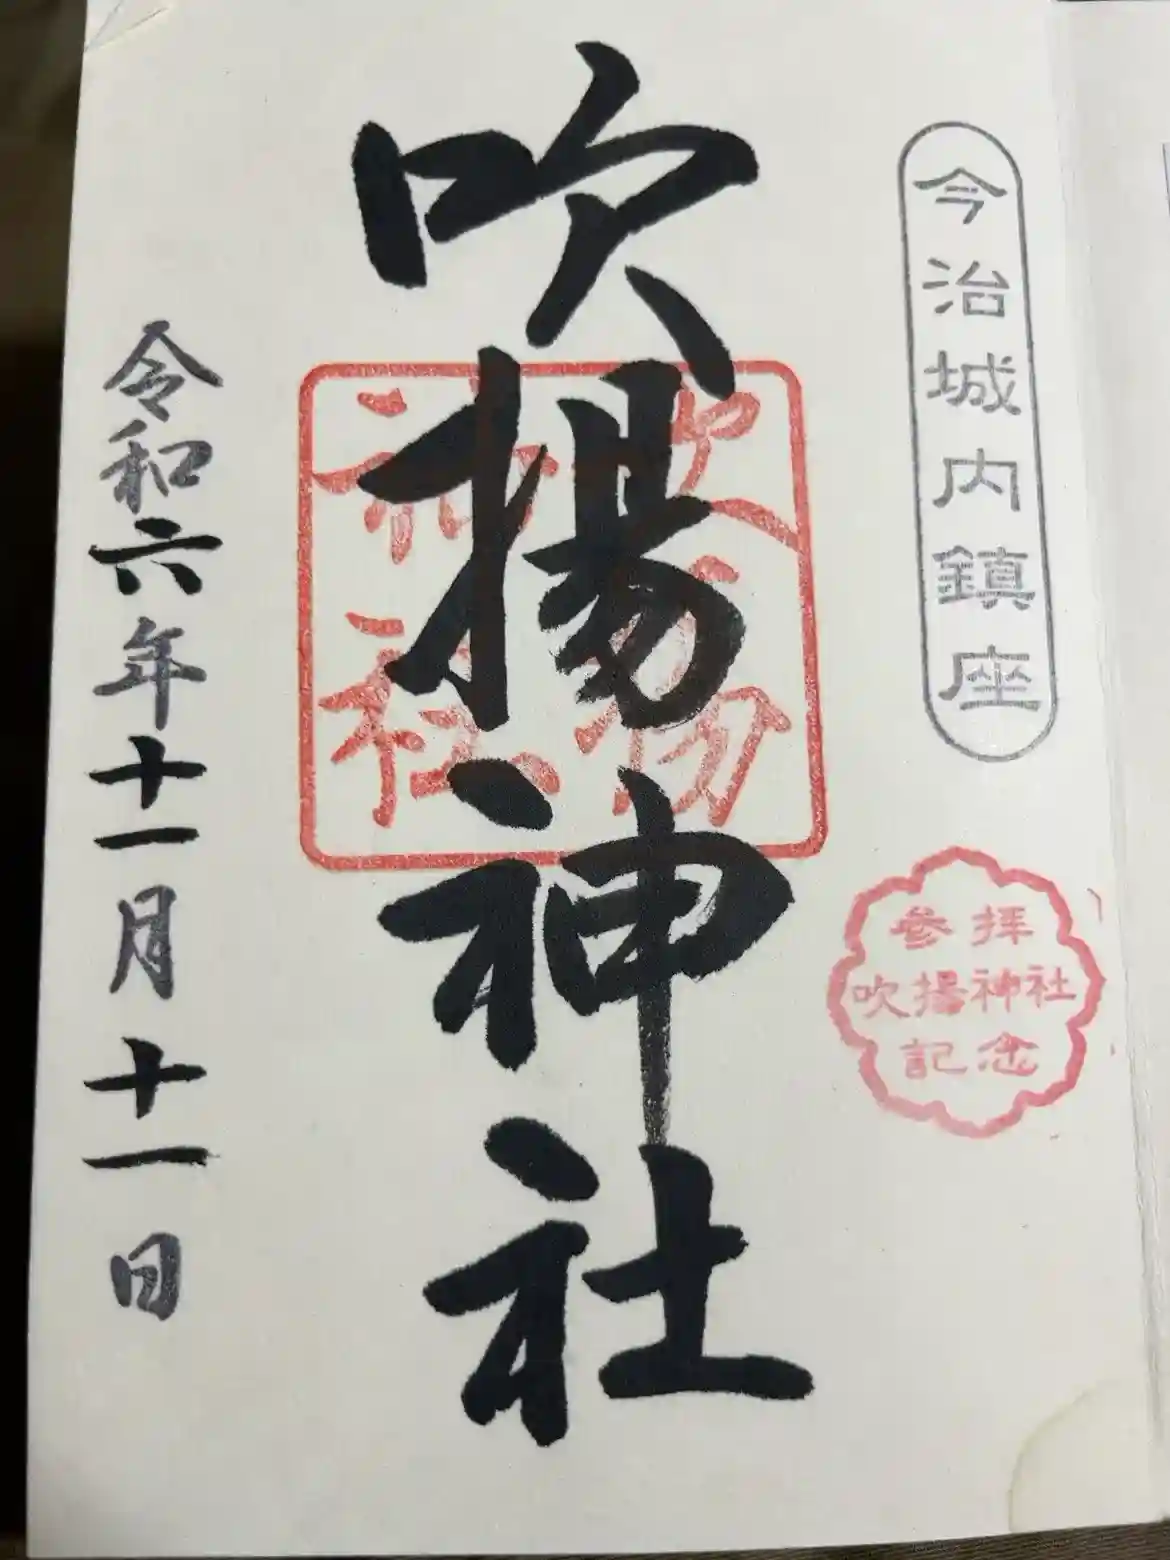 今治城内鎮座
参拝
吹揚神社
記念
吹揚神社
吹揚
神社
令和六年十一月十一日